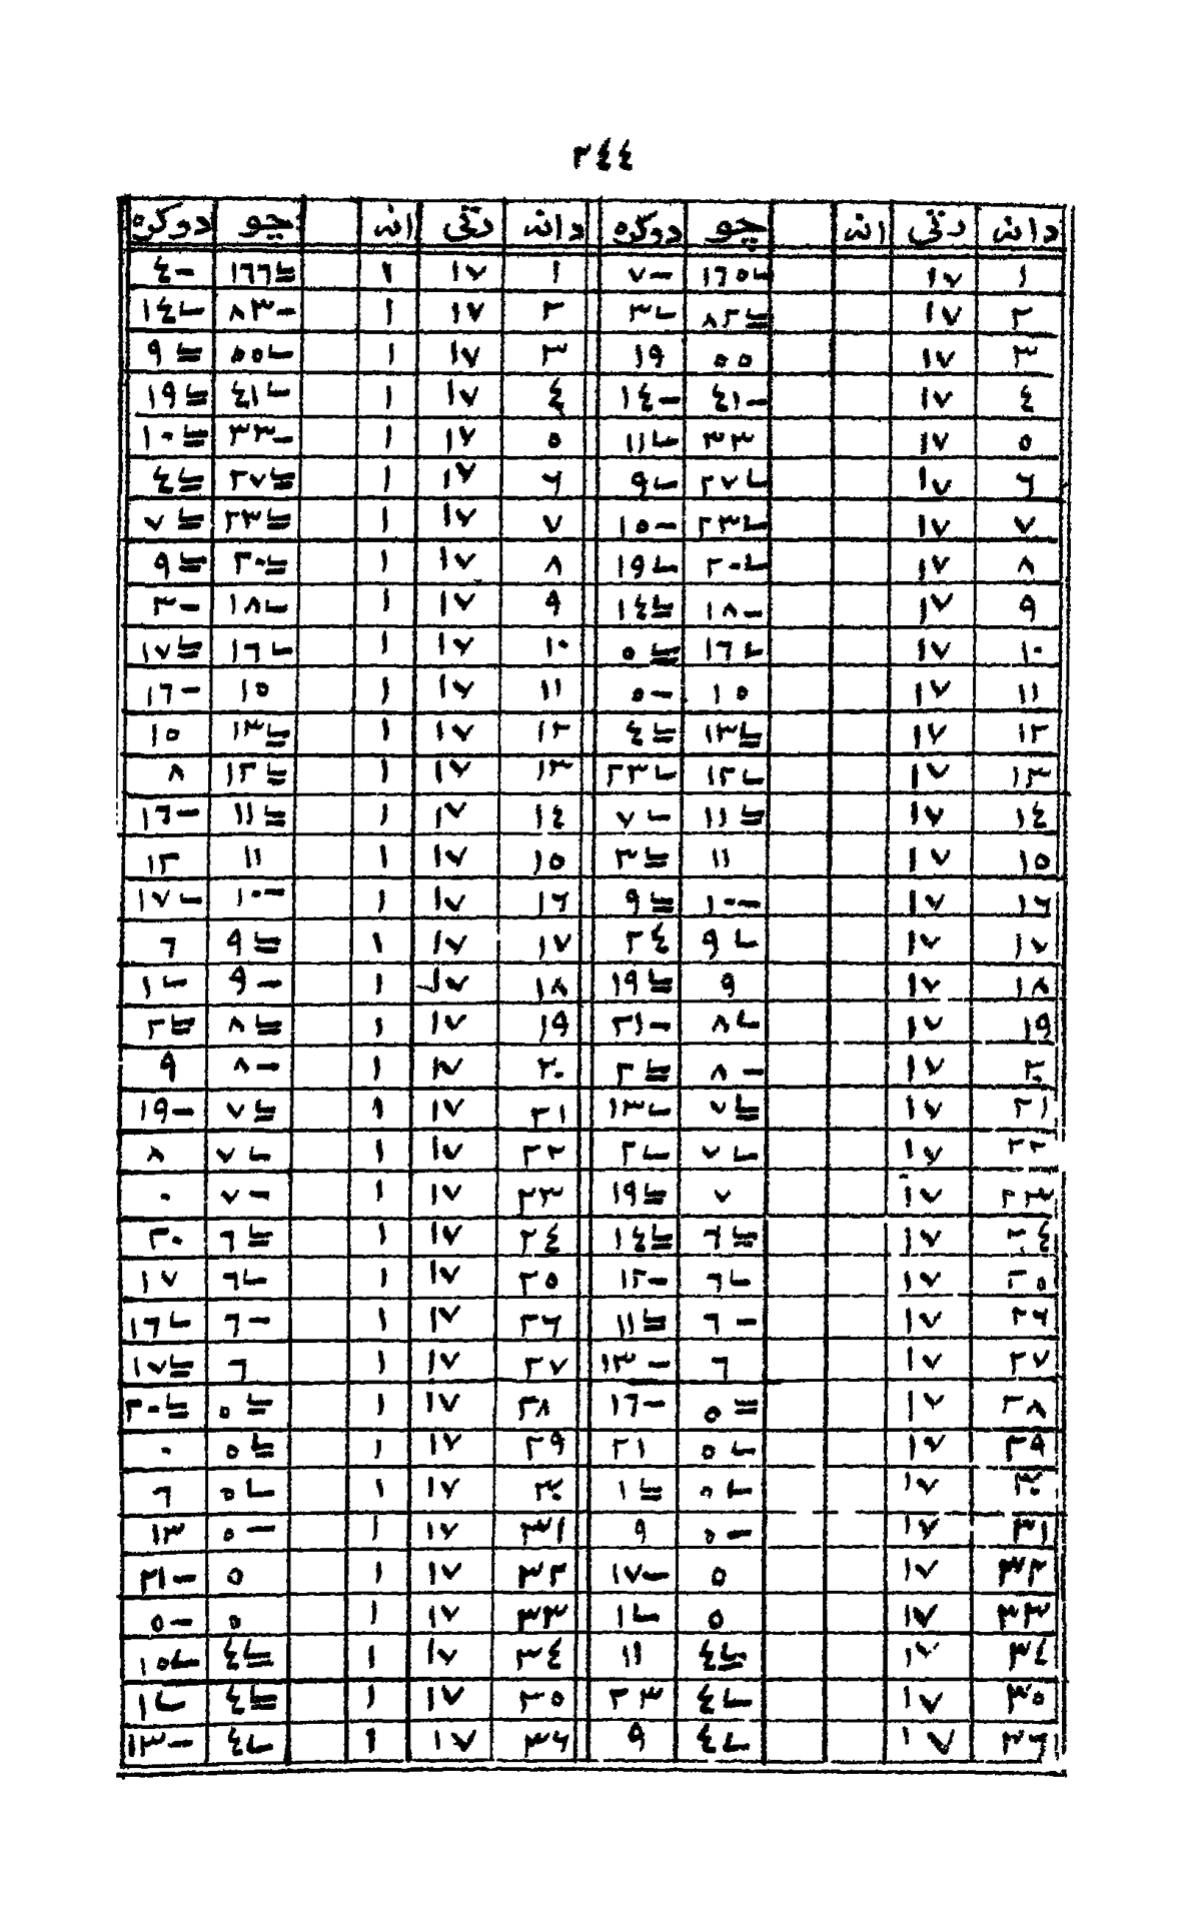 ٢٤٤
دانه رتي انه چو دوكره دانه رتي انه چو دوكره
١ ١٧ ١٦٥ـا ٧- ١ ١٧ ١ ١٦٦≡ ٤-
٢ ١٧ ٨٢≡ ٣ـا ٢ ١٧ ١ ٨٣- ١٤ـا
٣ ١٧ ٥٥ ١٩ ٣ ١٧ ١ ٥٥ـا ٩≡
٤ ١٧ ٤١- ١٤- ٤ ١٧ ١ ٤١ـا ١٩≡
٥ ١٧ ٣٣ ١١ـا ٥ ١٧ ١ ٣٣- ١٠≡
٦ ١٧ ٢٧ـا ٩ـا ٦ ١٧ ١ ٢٧≡ ٤≡
٧ ١٧ ٢٣ـا ١٥- ٧ ١٧ ١ ٢٣≡ ٧≡
٨ ١٧ ٢٠ـا ١٩ـا ٨ ١٧ ١ ٢٠≡ ٩≡
٩ ١٧ ١٨- ١٤≡ ٩ ١٧ ١ ١٨ـا ٣-
١٠ ١٧ ١٦ـا ٥≡ ١٠ ١٧ ١ ١٦ـا ١٧≡
١١ ١٧ ١٥ ٥- ١١ ١٧ ١ ١٥ ١٦-
١٢ ١٧ ١٣≡ ٤≡ ١٢ ١٧ ١ ١٣≡ ١٥
١٣ ١٧ ١٢ـا ٢٣ـا ١٣ ١٧ ١ ١٢≡ ٨
١٤ ١٧ ١١≡ ٧ـا ١٤ ١٧ ١ ١١≡ ١٦-
١٥ ١٧ ١١ ٣≡ ١٥ ١٧ ١ ١١ ١٢
١٦ ١٧ ١٠- ٩≡ ١٦ ١٧ ١ ١٠- ١٧ـا
١٧ ١٧ ٩ـا ٢٤ ١٧ ١٧ ١ ٩≡ ٦
١٨ ١٧ ٩ ١٩≡ ١٨ ١٧ ١ ٩- ١ـا
١٩ ١٧ ٨ـا ٢١- ١٩ ١٧ ١ ٨≡ ٢≡
٢٠ ١٧ ٨- ٢≡ ٢٠ ١٧ ١ ٨- ٩
٢١ ١٧ ٧≡ ١٣ـا ٢١ ١٧ ١ ٧≡ ١٩-
٢٢ ١٧ ٧ـا ٢ـا ٢٢ ١٧ ١ ٧ـا ٨
٢٣ ١٧ ٧ ١٩≡ ٢٣ ١٧ ١ ٧- ٠
٢٤ ١٧ ٦≡ ١٤≡ ٢٤ ١٧ ١ ٦≡ ٢٠
٢٥ ١٧ ٦ـا ١٢- ٢٥ ١٧ ١ ٦ـا ١٧
٢٦ ١٧ ٦- ١١≡ ٢٦ ١٧ ١ ٦- ١٦ـا
٢٧ ١٧ ٦ ١٣- ٢٧ ١٧ ١ ٦ ١٧≡
٢٨ ١٧ ٥≡ ١٦- ٢٨ ١٧ ١ ٥≡ ٢٠≡
٢٩ ١٧ ٥ـا ٢١ ٢٩ ١٧ ١ ٥≡ ٠
٣٠ ١٧ ٥ـا ١≡ ٣٠ ١٧ ١ ٥ـا ٦
٣١ ١٧ ٥- ٩ ٣١ ١٧ ١ ٥- ١٣
٣٢ ١٧ ٥ ١٧- ٣٢ ١٧ ١ ٥ ٢١-
٣٣ ١٧ ٥ ١ـا ٣٣ ١٧ ١ ٥ ٥-
٣٤ ١٧ ٤≡ ١١ ٣٤ ١٧ ١ ٤≡ ١٥ـا
٣٥ ١٧ ٤ـا ٢٣ ٣٥ ١٧ ١ ٤≡ ١ـا
٣٦ ١٧ ٤ـا ٩ ٣٦ ١٧ ١ ٤ـا ١٣-